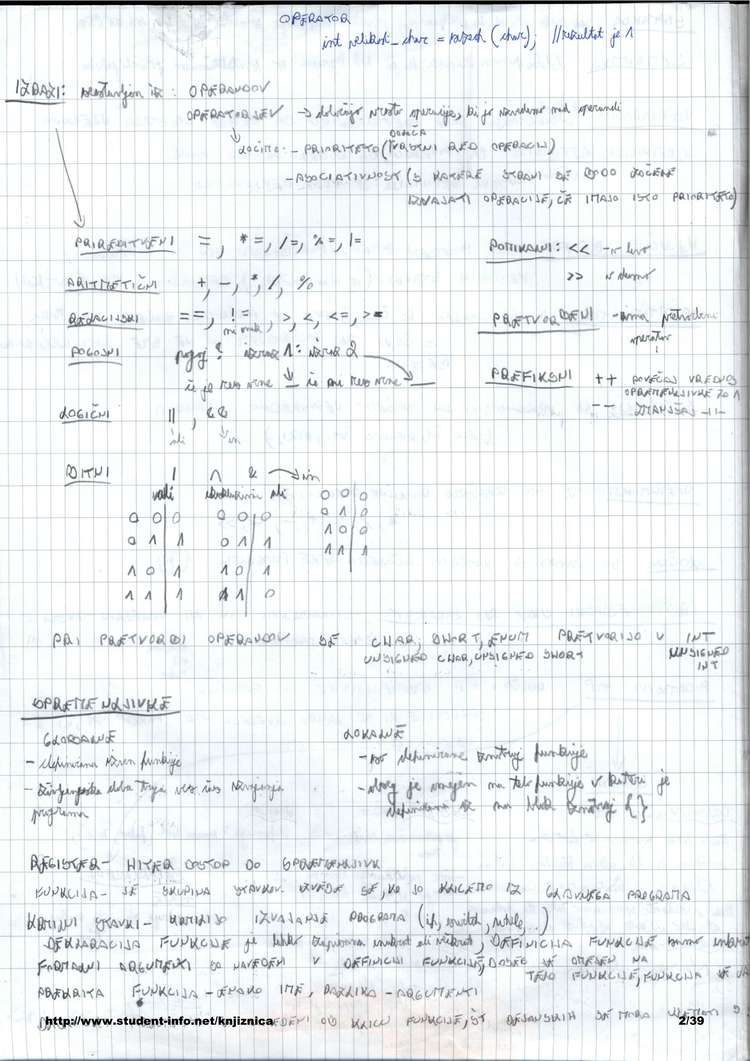 OPERATOR
int velikost_char = sizeof (char); //rezultat je 1
IZRAZI: sestavljen iz : OPERANDOV
OPERATORJEV → določajo vrsto operacije, ki jo izvedemo nad operandi
LOČIMO - PRIORITETO (DOLOČA VRSTNI RED OPERACIJ)
- ASOCIATIVNOST (S KATERE STRANI SE BODO ZAČELE
IZVAJATI OPERACIJE, ČE IMAJO ISTO PRIORITETO)
PRIREDITVENI =, *=, /=, %=, |=
POMIKALNI: << v levo
>> v desno
ARITMETIČNI +, -, *, /, %
RELACIJSKI ==, !=, >, <, <=, >=
ni enak
PRETVORBENI -
operator
POGOJNI pogoj ? izraz 1 : izraz 2
če je res vrne če ni res vrne
PREFIKSNI ++ POVEČAJ VREDNOS
SPREMENLJIVKE ZA 1
-- ZMANJŠAJ -||-
LOGIČNI ||, &&
ali in
BITNI | ^ & → in
ali ekskluzivni ali
0 0 0
0 0 0 0 0 0 0 1 0
0 1 1 0 1 1 1 0 0
1 1 1
1 0 1 1 0 1
1 1 1 1 1 0
PRI PRETVORBI OPERANDOV SE CHAR, SHORT, ENUM PRETVORIJO V INT
UNSIGNED CHAR, UNSIGNED SHORT UNSIGNED
INT
SPREMENLJIVKE
GLOBALNE
- definirana izven funkcije
- življenjska doba traja ves čas izvajanja
programa
LOKALNE
- so definirane znotraj funkcije
- obseg je omejen na telo funkcije v kateri je
definirana oz. na blok znotraj { }
REGISTER - HITER DOSTOP DO SPREMENLJIVK
FUNKCIJA - JE SKUPINA STAVKOV. IZVEDE SE, KO JO KLIČEMO IZ GLAVNEGA PROGRAMA
KRMILNI STAVKI - KRMILIJO IZVAJANJE PROGRAMA (if, switch, while, ...)
DEKLARACIJA FUNKCIJE je lahko enkrat ali večkrat, DEFINICIJA FUNKCIJE samo enkrat
FORMALNI ARGUMENTI SO NAVEDENI V DEFINICIJI FUNKCIJE, DOSEG JE OMEJEN NA
TELO FUNKCIJE, FUNKCIJA
PREKRITA FUNKCIJA - ENAKO IME, RAZLIKA - ARGUMENTI
http://www.student-info.net/knjiznica OB KLICU FUNKCIJE, ŠT DEJANSKIH SE MORA UJEMATI S
2/39